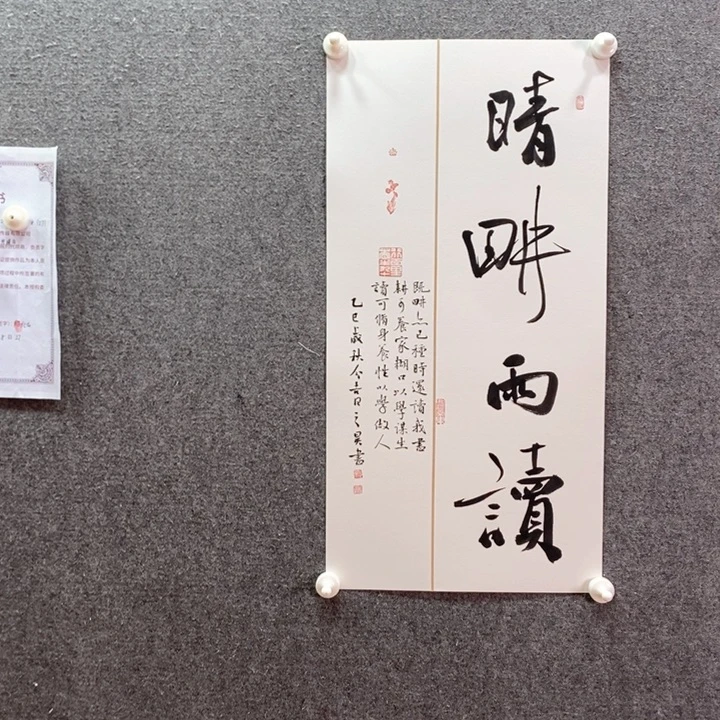 晴畊雨讀
既畊亦已種時還讀我書
耕可養家糊口以學謀生
讀可脩身養性以學做人
乙巳歲秋令吉日之昊書